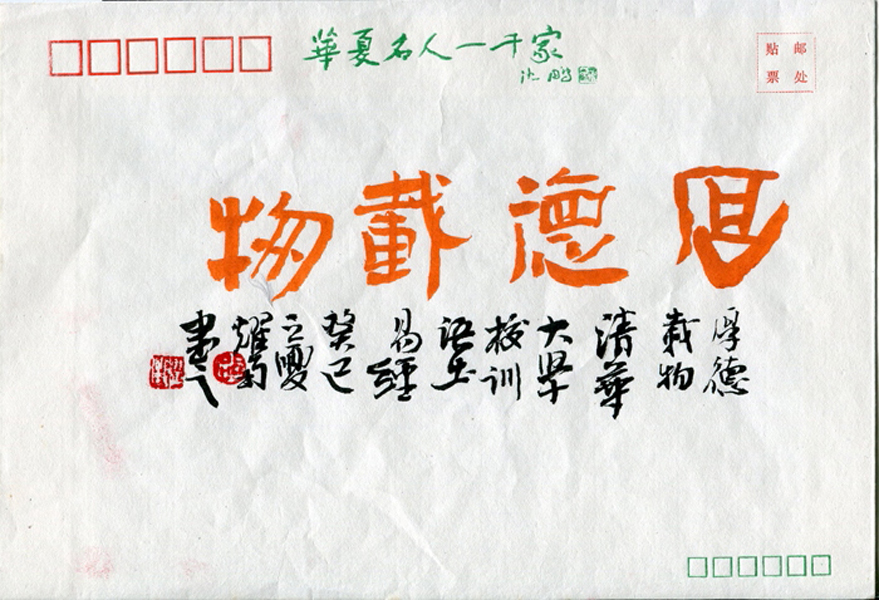 華夏名人一千家
沈鹏
贴 邮
票 处
厚德載物
厚德
載物
清華
大學
校训
语出
易經
癸巳
之夏
耀
書之